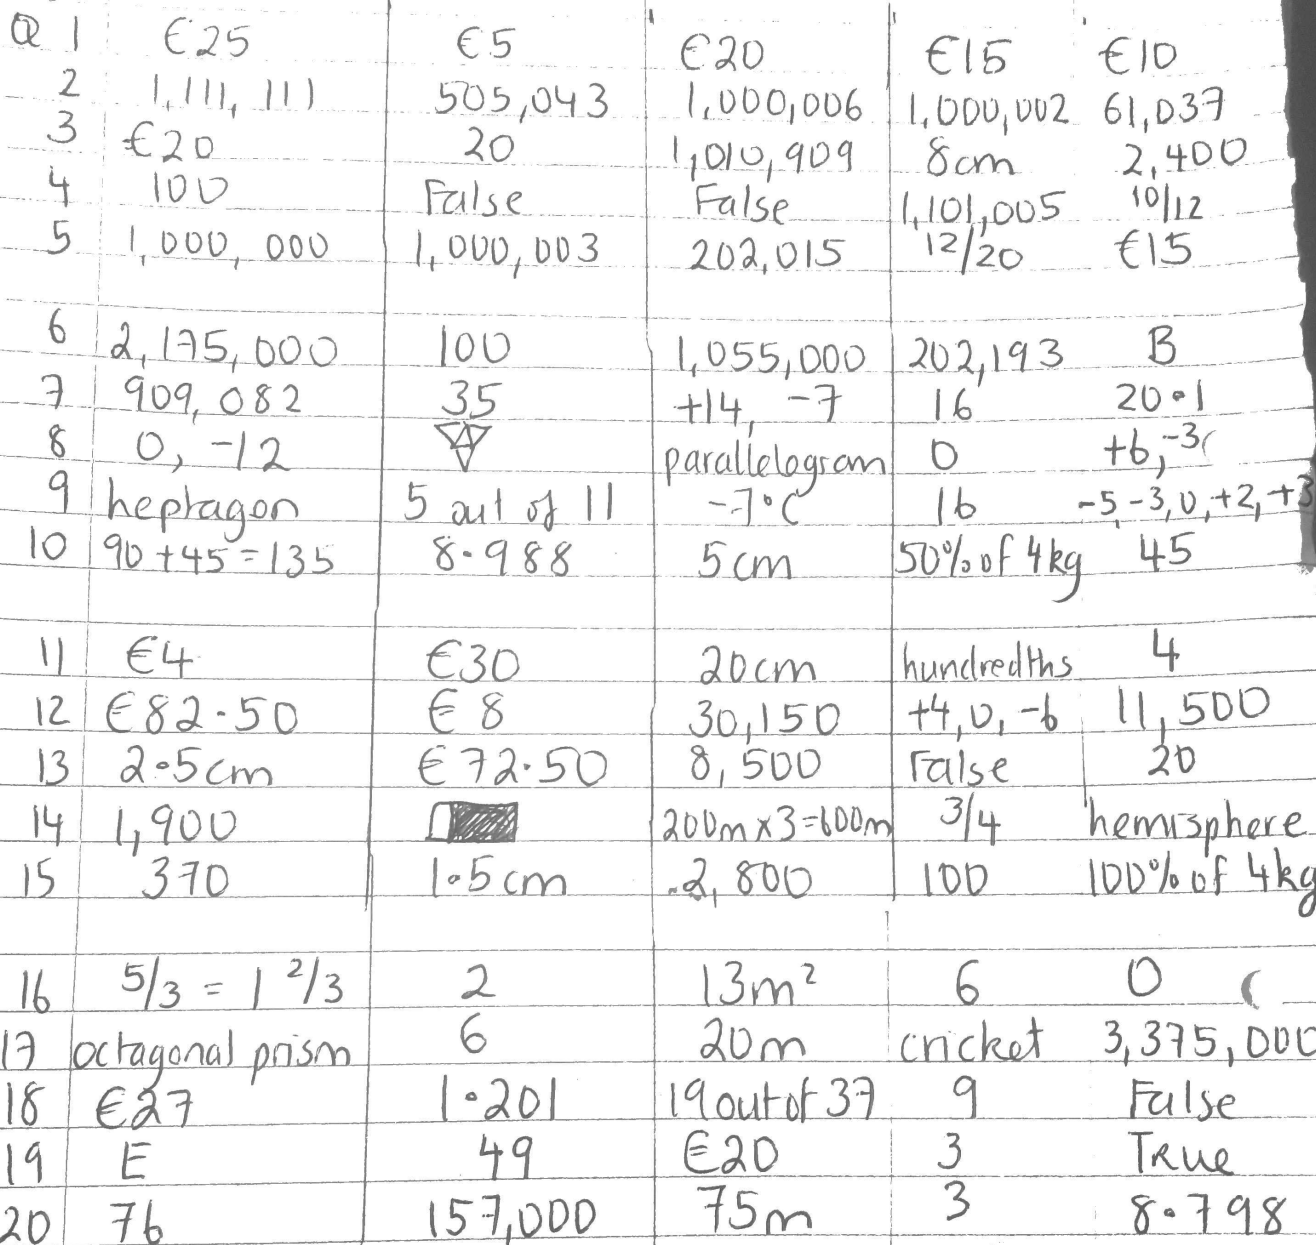 Q 1 €25 €5 €20 €15 €10
2 1,111,111 505,043 1,000,006 1,000,002 61,037
3 €20 20 1,010,909 8cm 2,400
4 100 False False 1,101,005 10/12
5 1,000,000 1,000,003 202,015 12/20 €15
6 2,175,000 100 1,055,000 202,193 B
7 909,082 35 +14, -7 16 20.1
8 0, -12 parallelogram 0 +6, -3
9 heptagon 5 out of 11 -7°C 16 -5, -3, 0, +2, +3
10 90+45=135 8.988 5cm 50% of 4kg 45
11 €4 €30 20cm hundredths 4
12 €82.50 €8 30,150 +4, 0, -6 11,500
13 2.5cm €72.50 8,500 False 20
14 1,900 200m x 3=600m 3/4 hemisphere
15 370 1.5cm 2,800 100 100% of 4kg
16 5/3 = 1 2/3 2 13m² 6 0
17 octagonal prism 6 20m cricket 3,375,000
18 €27 1.201 19 out of 37 9 False
19 E 49 €20 3 True
20 76 157,000 75m 3 8.798